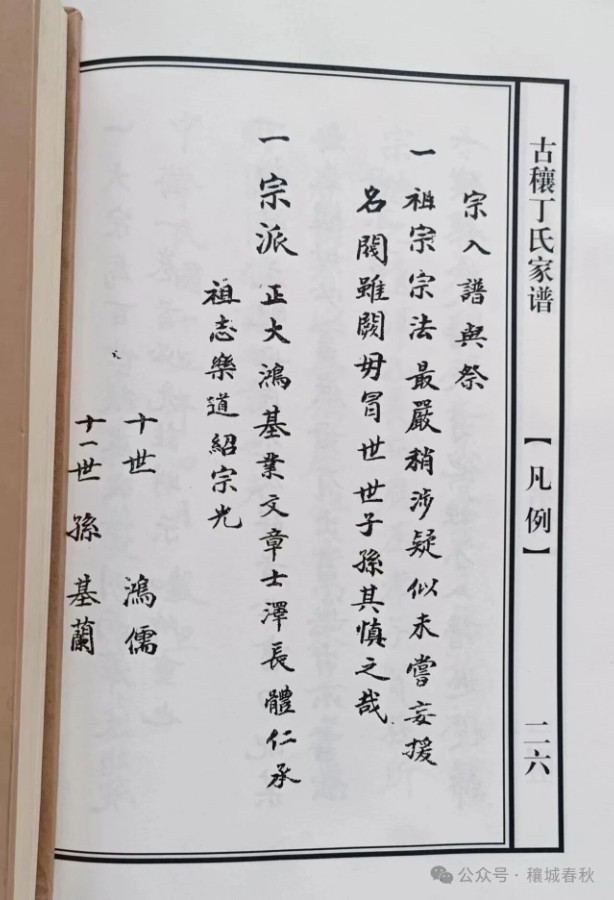 古穰丁氏家谱
【凡例】
二六
宗入譜與祭
一祖宗宗法最嚴稍涉疑似未嘗妄援
名閥雖闕毋冒世世子孫其慎之哉
一宗派正大鴻基業文章士澤長體仁承
祖志樂道紹宗光
十世 鴻儒
十一世孫 基蘭
公众号·穰城春秋